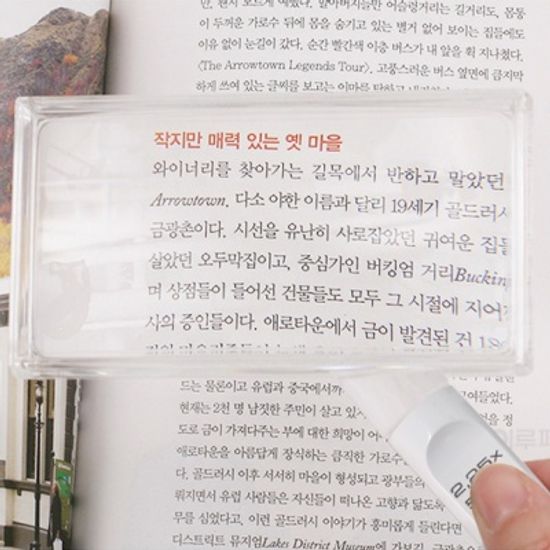 면서 보르게 예뻤다. 알아버지들만 어슬렁거리는 길거리도, 몸통
이 두꺼운 가로수 뒤에 몸을 숨기고 있는 별거 없어 보이는 집들에도
이유 없이 눈길이 갔다. 순간 빨간색 이층 버스가 내 앞을 휙 지나쳤다.
〈The Arrowtown Legends Tour〉. 고풍스러운 버스 옆면에 큼지막
하게 쓰여 있는 글씨를 보고는 이마를 탁하고
작지만 매력 있는 옛 마을
와이너리를 찾아가는 길목에서 반하고 말았던
Arrowtown. 다소 야한 이름과 달리 19세기 골드러시
금광촌이다. 시선을 유난히 사로잡았던 귀여운 집들
살았던 오두막집이고, 중심가인 버킹엄 거리Bucking
며 상점들이 들어선 건물들도 모두 그 시절에 지어
사의 증인들이다. 애로타운에서 금이 발견된 건 18
드는 물론이고 유럽과 중국에서까
현재는 2천 명 남짓한 주민이 살고 있
도로 금이 가져다주는 부에 대한 희망이 어
애로타운을 아름답게 장식하는 큼직한 가로수
다. 골드러시 이후 서서히 마을이 형성되고 광부들의
뭐지면서 유럽 사람들은 자신들이 떠나온 고향과 닮도록
무를 심었다고, 이런 골드러시 이야기가 흥미롭게 들린다면
디스트릭트 뮤지엄Lakes District Museum에 가보길.
2.25X